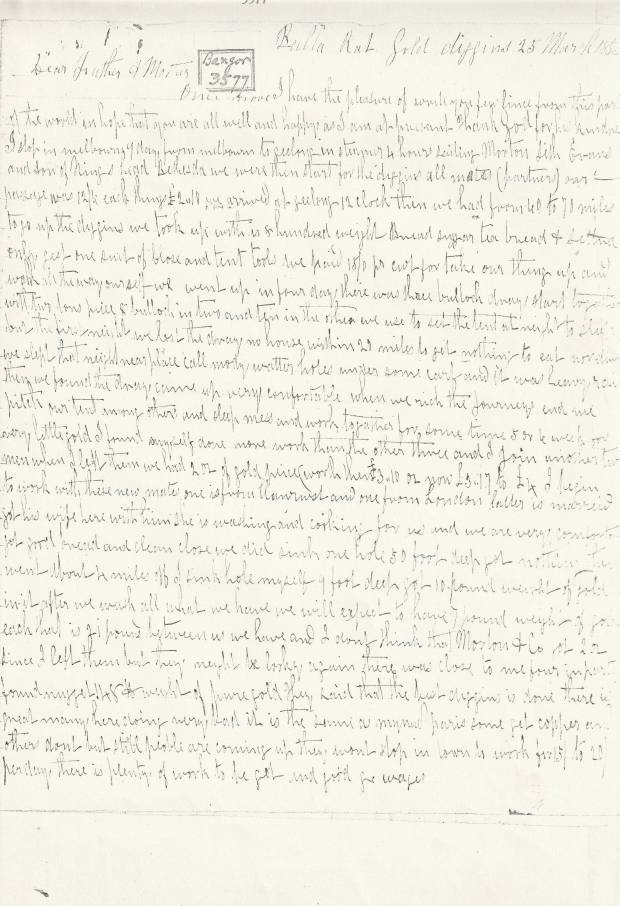 Balla Rat Gold diggins 25 March
Dear Father & Mother
Bangor
3577
I have the pleasure of write you few lines from this part
of the world in hope that you are all well and happy as I am at present thank God for his kindness
I stop in melbourn day from melbourn to geelong in steamer 4 hours sailing Morton Evans
and son of Kings head Bethesda we were then start for the diggins all mates (partners) our
passage was 12/6 each things £2.0.0 we arrived at geelong 12 clock then we had from 60 to 70 miles
to go up the diggins we took up with us 8 hundred weight Bread suggar tea bread &
only gest one sut of close and tent tools we paid 18/0 pr cwt for take our things up and
walk all the way ourself we went up in four day, there was three bulloch dray, start together
with two tons piece 8 bulloch in two and ten in the other we use to set the tent at night to sleep
but the first neight we lost the dray, no house within 20 miles to get nothing to eat nor
we slept that neight near place call mody, watter holes under some and it was heavy rain
then we found the dray, came up very comfortable when we rich the journeys end we
pitch our tent among others and sleep mess and work together for some time 5 or 6 week for
very little gold I found myself done more work than the other three and I join another two
men when I left them we had 2 oz of gold piece (worth then £3.10 oz now £3.17 to £4 I begin
to work with these new mates one is from Llanrwst and one from London latter is married
got his wife here with him she is washing and cooking for us and we are very comfortable
got good bread and clean close we did sink one hole 80 foot deep got nothing then
went about 4 miles off I sink hole myself 9 foot deep got 10 pound weight of gold
in it after we wash all what we have we will expect to have 7 pound weight of gold
each that is 21 pound between us we have and I dont think that Morton & Co got 2 oz
since I left them but they might be lucky again there was close to me four
found nugget 148 lb weight of pure gold they said that the best diggins is done there is
great many here doing very bad it is the same as mynud paris some get copper and
others dont but still pioble are coming up they wont stop in town to work for 15/ to 20/
per day, there is plenty of work to be got and good wages